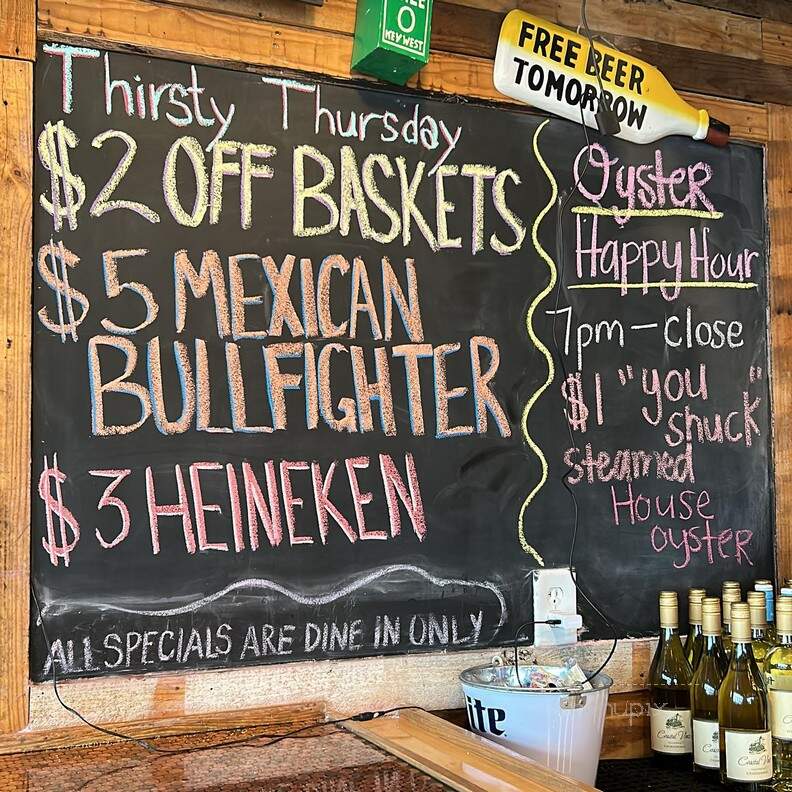 O
KEY WEST
FREE BEER
TOMORROW
Thirsty Thursday
$2 OFF BASKETS
$5 MEXICAN
BULLFIGHTER
$3 HEINEKEN
ALL SPECIALS ARE DINE IN ONLY
Oyster
Happy Hour
7pm - close
$1 "you
shuck"
steamed
House
oyster
ite
Coastal Vines